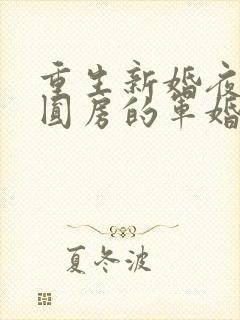 重生新婚夜
圆房的军婚
夏冬波